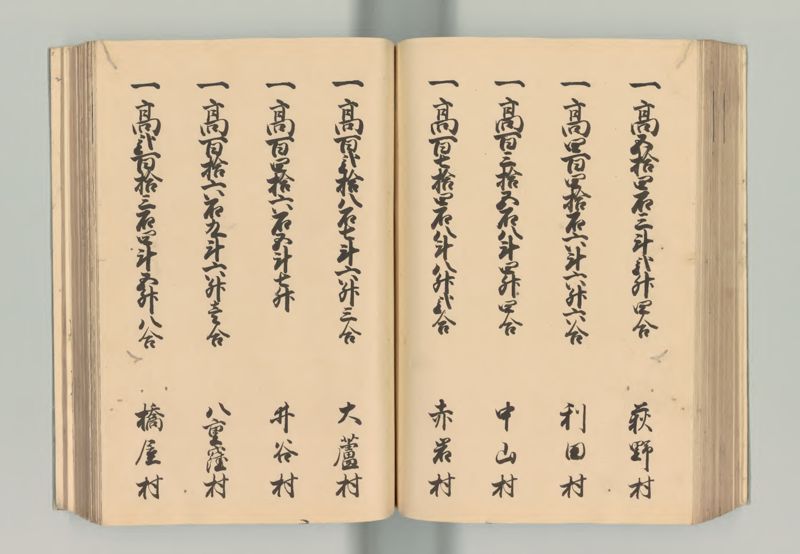 一 高五拾四石三斗弐升四合 萩野村
一 高四百四拾石六斗六升六合 利田村
一 高百三拾五石八斗四升四合 中山村
一 高百七拾四石八斗八升弐合 赤岩村
一 高百弐拾八石七斗六升三合 大蘆村
一 高百四拾六石五斗七升 井谷村
一 高百拾六石九斗六升壱合 八重窪村
一 高弐百拾三石四斗五升八合 橋屋村